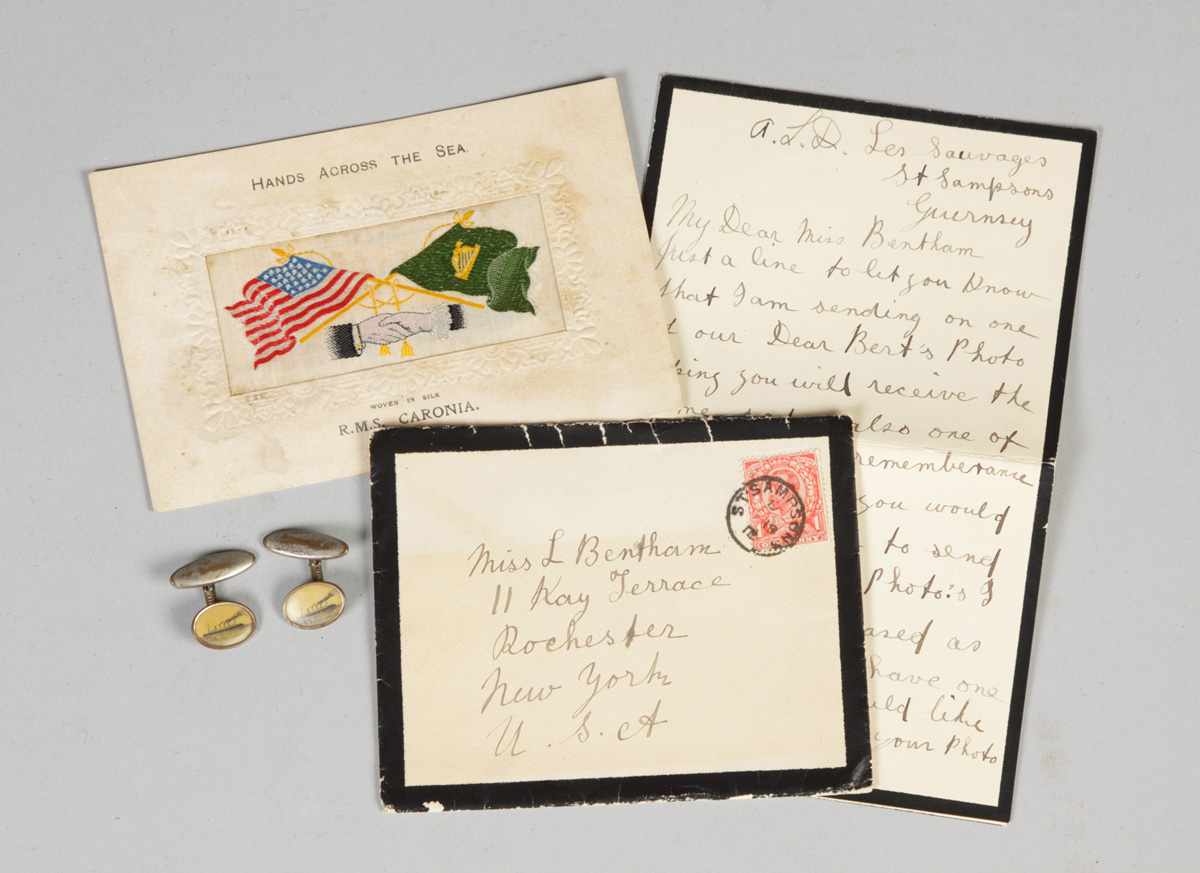 HANDS ACROSS THE SEA.
WOVEN IN SILK
R.M.S. CARONIA.
A.L.D. Les Sauvages
St Sampsons
Guernsey
My Dear Miss Bentham
Just a line to let you Know
that I am sending on one
our Dear Bert's Photo
you will receive the
also one of
rememberance
you would
to send
Photo's I
as
have one
like
your Photo
ST SAMPSONS
Miss L Bentham
11 Kay Terrace
Rochester
New York
U.S.A